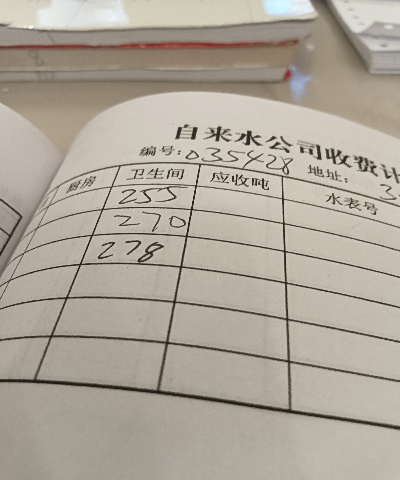 自来水公司收费计
编号:035428 地址: 3
厨房 卫生间 应收吨 水表号
255
270
278